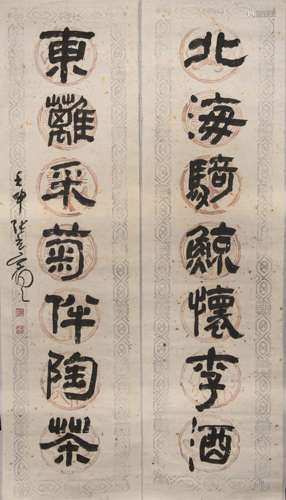 北海騎鯨懷李酒
東離采菊伴陶茶
壬申